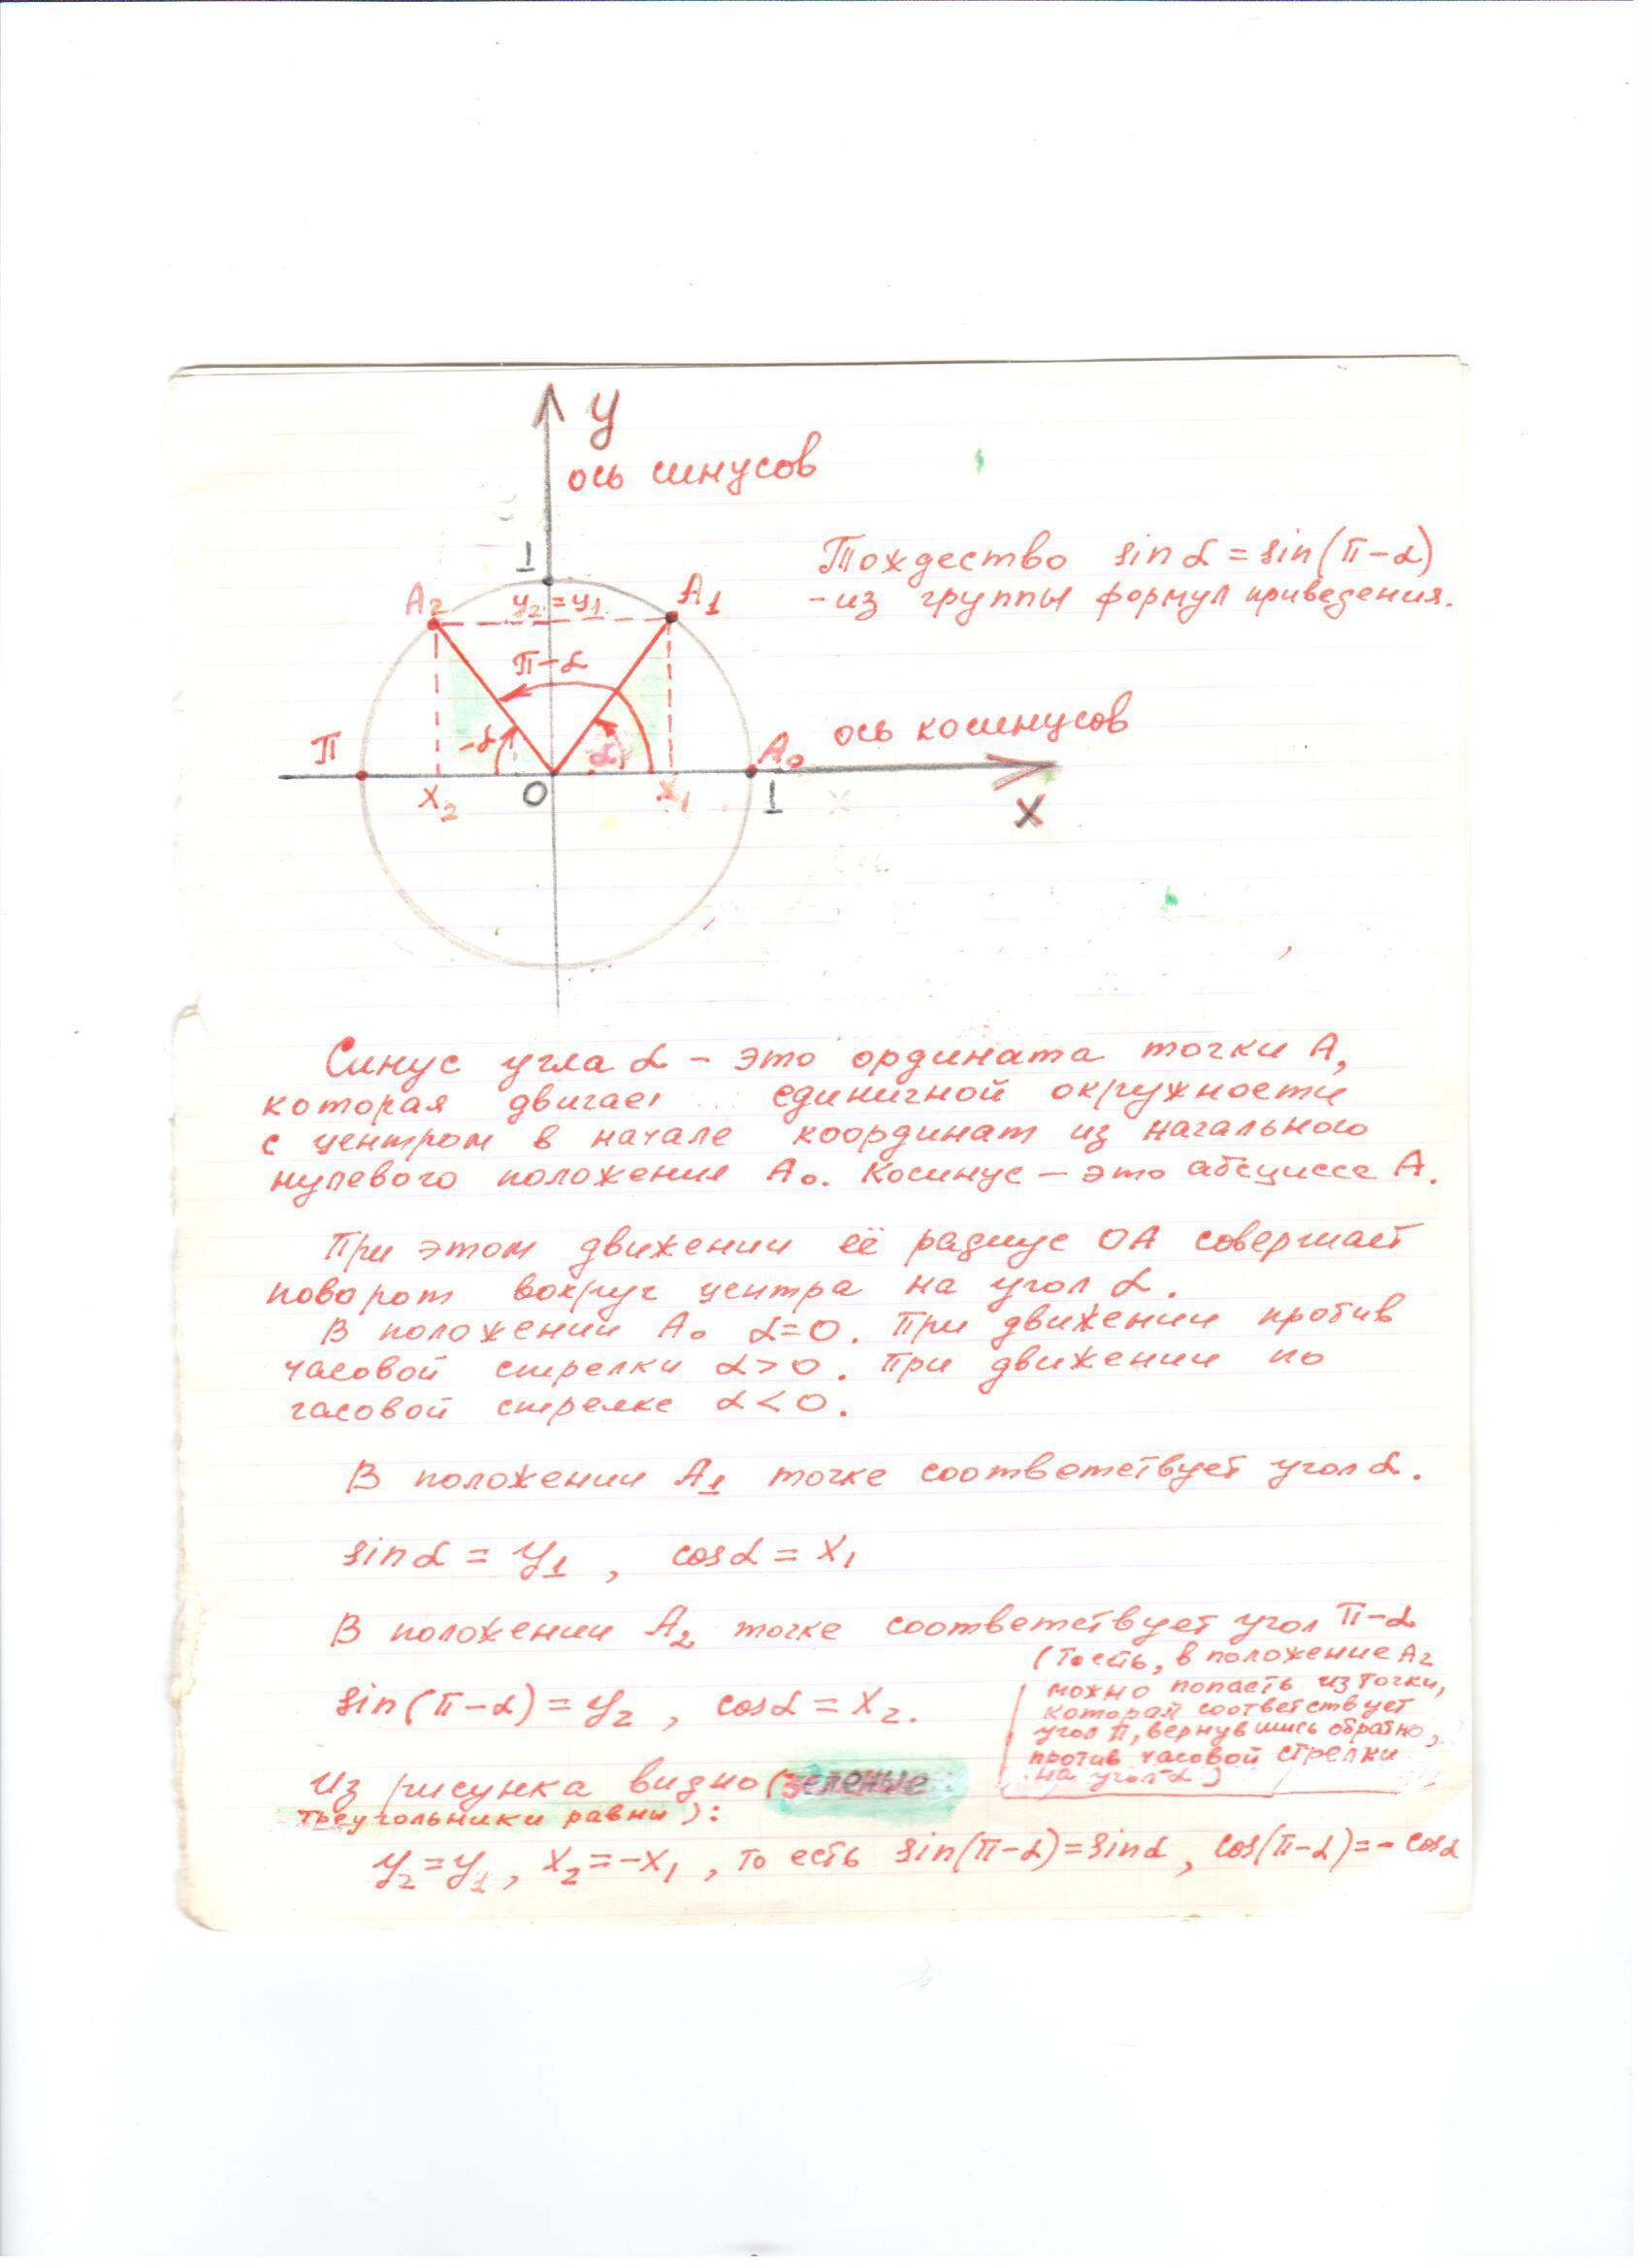 y
ось синусов
1
Тождество sin α = sin(π-α)
- из группы формул приведения.
A₂ y₂ = y₁ A₁
π-α
π -α α A₀ ось косинусов
x₂ O x₁ 1 X
Синус угла α - это ордината точки A,
которая двигает единичной окружности
с центром в начале координат из начального
нулевого положения A₀. Косинус - это абсцисса A.
При этом движении её радиус OA совершает
поворот вокруг центра на угол α.
В положении A₀ α=0. При движении против
часовой стрелки α>0. При движении по
часовой стрелке α<0.
В положении A₁ точке соответствует угол α.
sin α = y₁ , cos α = x₁
В положении A₂ точке соответствует угол π-α
(То есть, в положение A₂
можно попасть из точки,
которой соответствует
угол π, вернувшись обратно,
против часовой стрелки
на угол -α)
sin(π-α) = y₂ , cos α = x₂.
Из рисунка видно (зеленые
треугольники равны):
y₂ = y₁ , x₂ = -x₁ , то есть sin(π-α) = sin α , cos(π-α) = - cos α